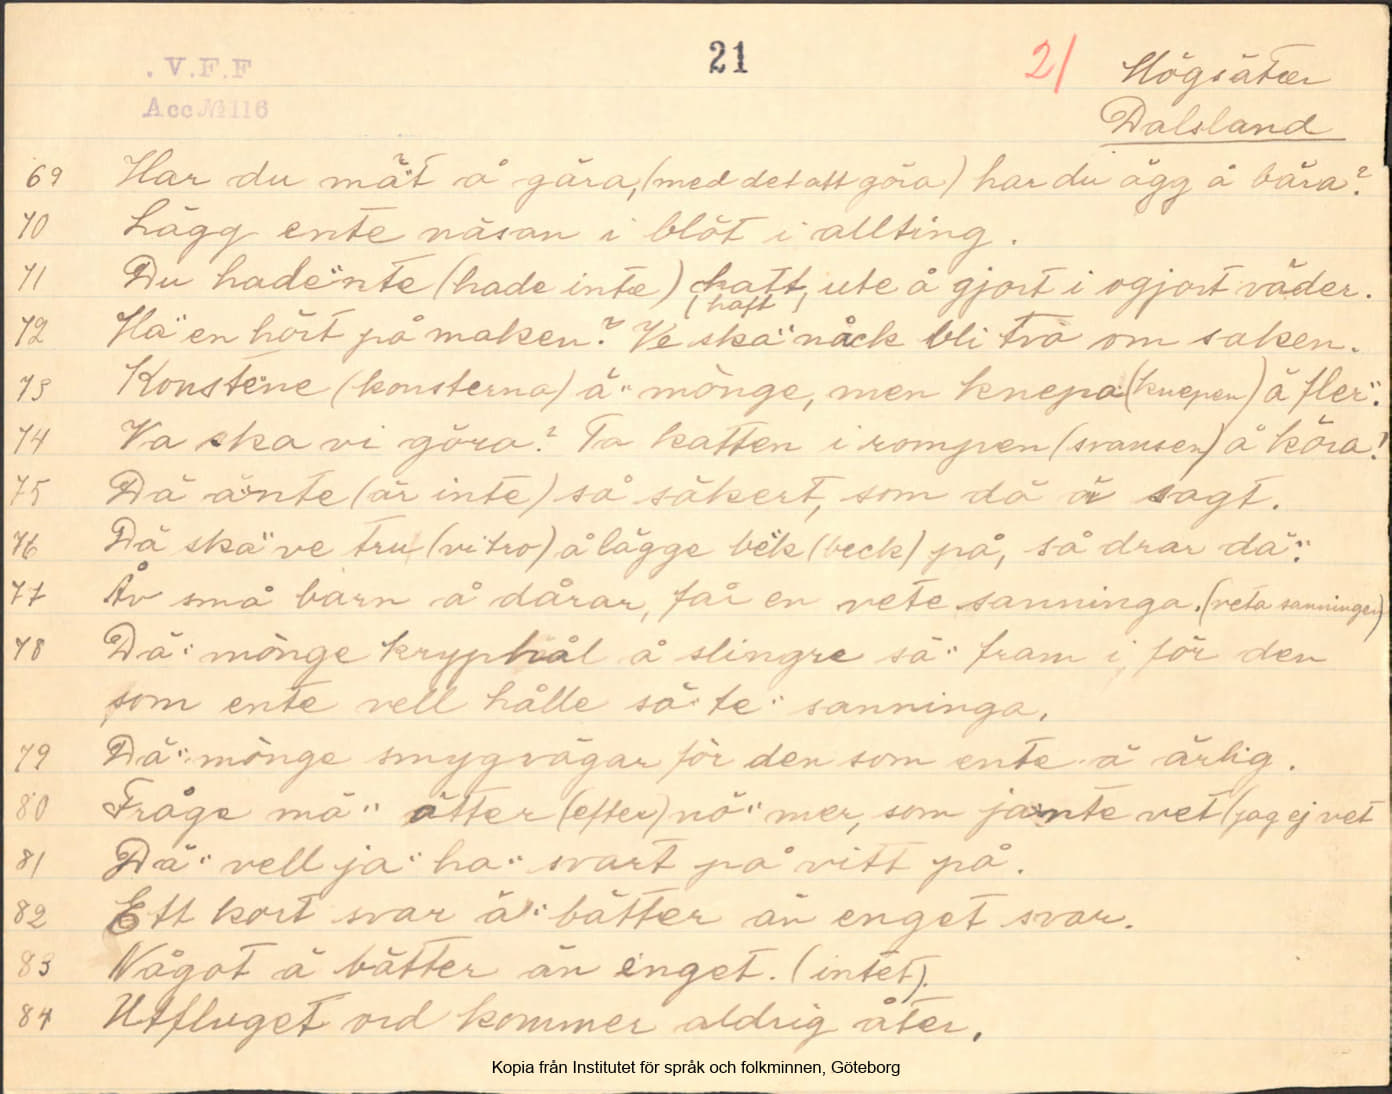 . V.F.F
Acc № 116
21
21
Högsäter
Dalsland
69 Har du mät å gära, (med det att göra) har du ägg å bära?
70 Lägg ente näsan i blöt i allting.
71 Du hade"nte (hade inte) hatt, ute å gjort i ogjort väder.
(haft)
72 Ha" en hört på maken? Ve ska" nåck bli två om saken.
73 Konstene (konsterna) ä" mönge, men knepa (knepen) ä fler".
74 Va ska vi göra? Ta katten i rompen (svansen) å köra!
75 Dä änte (är inte) så säkert, som dä ä sagt.
76 Dä ska" ve tru (vi tro) å lägge bek (beck) på, så drar dä".
77 Åv små barn å dårar, får en vete sanninga. (veta sanningen)
78 Dä" mönge kryphål å slingre sä" fram i, för den
som ente vell hålle sä" te" sanninga.
79 Dä" mönge smygvägar för den som ente ä ärlig.
80 Fråge mä" ätter (efter) nö" mer, som jante vet (jag ej vet
81 Dä" vell ja" ha" svart på vitt på.
82 Ett kort svar ä" bätter än enget svar.
83 Något ä bätter än enget. (intet).
84 Utfluget ord kommer aldrig åter.
Kopia från Institutet för språk och folkminnen, Göteborg